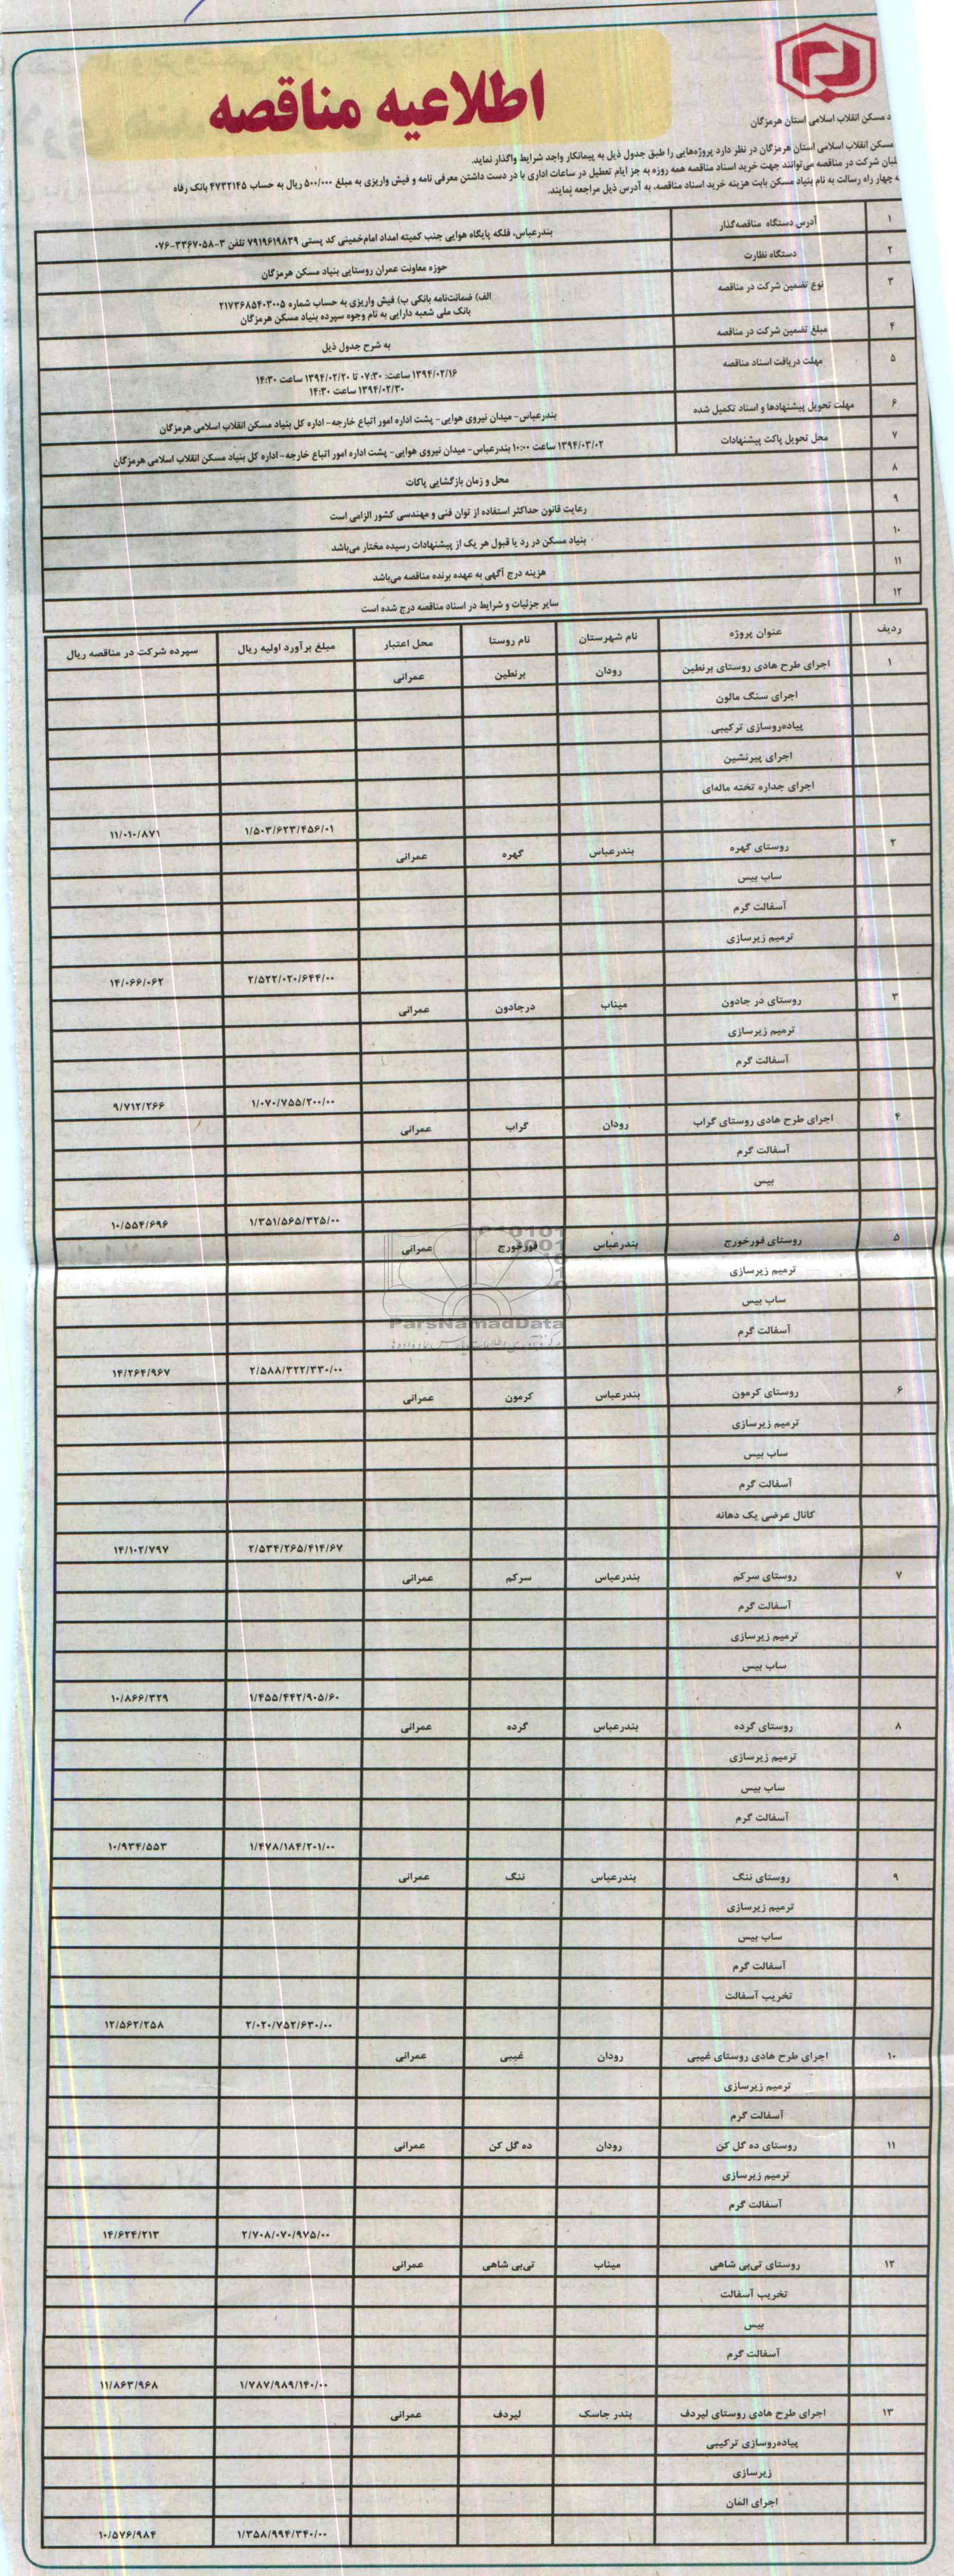 اطلاعیه مناقصه
د مسکن انقلاب اسلامی استان هرمزگان
مسکن انقلاب اسلامی استان هرمزگان در نظر دارد پروژه‌هایی را طبق جدول ذیل به پیمانکار واجد شرایط واگذار نماید.
لبان شرکت در مناقصه می‌توانند جهت خرید اسناد مناقصه همه روزه به جز ایام تعطیل در ساعات اداری با در دست داشتن معرفی نامه و فیش واریزی به مبلغ ۵۰۰/۰۰۰ ریال به حساب ۴۷۳۲۱۴۵ بانک رفاه
ه چهار راه رسالت به نام بنیاد مسکن بابت هزینه خرید اسناد مناقصه، به آدرس ذیل مراجعه نمایند.
۱ آدرس دستگاه مناقصه‌گذار بندرعباس، فلکه پایگاه هوایی جنب کمیته امداد امام‌خمینی کد پستی ۷۹۱۹۶۱۹۸۳۹ تلفن ۳-۳۳۶۷۰۵۸-۰۷۶
۲ دستگاه نظارت حوزه معاونت عمران روستایی بنیاد مسکن هرمزگان
۳ نوع تضمین شرکت در مناقصه الف) ضمانت‌نامه بانکی ب) فیش واریزی به حساب شماره ۲۱۷۳۶۸۵۴۰۳۰۰۵
بانک ملی شعبه دارایی به نام وجوه سپرده بنیاد مسکن هرمزگان
۴ مبلغ تضمین شرکت در مناقصه به شرح جدول ذیل
۵ مهلت دریافت اسناد مناقصه ۱۳۹۴/۰۲/۱۶ ساعت: ۰۷:۳۰ تا ۱۳۹۴/۰۲/۲۰ ساعت ۱۴:۳۰
۱۳۹۴/۰۲/۳۰ ساعت ۱۴:۳۰
۶ مهلت تحویل پیشنهادها و اسناد تکمیل شده بندرعباس- میدان نیروی هوایی- پشت اداره امور اتباع خارجه- اداره کل بنیاد مسکن انقلاب اسلامی هرمزگان
۷ محل تحویل پاکت پیشنهادات ۱۳۹۴/۰۳/۰۲ ساعت ۱۰:۰۰ بندرعباس- میدان نیروی هوایی- پشت اداره امور اتباع خارجه- اداره کل بنیاد مسکن انقلاب اسلامی هرمزگان
۸ محل و زمان بازگشایی پاکات
۹ رعایت قانون حداکثر استفاده از توان فنی و مهندسی کشور الزامی است
۱۰ بنیاد مسکن در رد یا قبول هر یک از پیشنهادات رسیده مختار می‌باشد
۱۱ هزینه درج آگهی به عهده برنده مناقصه می‌باشد
۱۲ سایر جزئیات و شرایط در اسناد مناقصه درج شده است
ردیف عنوان پروژه نام شهرستان نام روستا محل اعتبار مبلغ برآورد اولیه ریال سپرده شرکت در مناقصه ریال
۱ اجرای طرح هادی روستای برنطین رودان برنطین عمرانی
اجرای سنگ مالون
پیاده‌روسازی ترکیبی
اجرای پیرنشین
اجرای جداره تخته ماله‌ای
۱/۵۰۳/۶۲۳/۴۵۶/۰۱ ۱۱/۰۱۰/۸۷۱
۲ روستای گهره بندرعباس گهره عمرانی
ساب بیس
آسفالت گرم
ترمیم زیرسازی
۲/۵۲۲/۰۲۰/۶۴۴/۰۰ ۱۴/۰۶۶/۰۶۲
۳ روستای در جادون میناب درجادون عمرانی
ترمیم زیرسازی
آسفالت گرم
۱/۰۷۰/۷۵۵/۲۰۰/۰۰ ۹/۷۱۲/۲۶۶
۴ اجرای طرح هادی روستای گراب رودان گراب عمرانی
آسفالت گرم
بیس
۱/۳۵۱/۵۶۵/۳۲۵/۰۰ ۱۰/۵۵۴/۶۹۶
۵ روستای قورخورج بندرعباس قورخورج عمرانی
ترمیم زیرسازی
ساب بیس
آسفالت گرم
ParsNamadData
۲/۵۸۸/۳۲۲/۳۳۰/۰۰ ۱۴/۲۶۴/۹۶۷
۶ روستای کرمون بندرعباس کرمون عمرانی
ترمیم زیرسازی
ساب بیس
آسفالت گرم
کانال عرضی یک دهانه
۲/۵۳۴/۲۶۵/۴۱۴/۶۷ ۱۴/۱۰۲/۷۹۷
۷ روستای سرکم بندرعباس سرکم عمرانی
آسفالت گرم
ترمیم زیرسازی
ساب بیس
۱/۴۵۵/۴۴۲/۹۰۵/۶۰ ۱۰/۸۶۶/۳۲۹
۸ روستای گرده بندرعباس گرده عمرانی
ترمیم زیرسازی
ساب بیس
آسفالت گرم
۱/۴۷۸/۱۸۴/۲۰۱/۰۰ ۱۰/۹۳۴/۵۵۳
۹ روستای تنگ بندرعباس تنگ عمرانی
ترمیم زیرسازی
ساب بیس
آسفالت گرم
تخریب آسفالت
۲/۰۲۰/۷۵۲/۶۳۰/۰۰ ۱۲/۵۶۲/۲۵۸
۱۰ اجرای طرح هادی روستای غیبی رودان غیبی عمرانی
ترمیم زیرسازی
آسفالت گرم
۱۱ روستای ده گل کن رودان ده گل کن عمرانی
ترمیم زیرسازی
آسفالت گرم
۲/۷۰۸/۰۷۰/۹۷۵/۰۰ ۱۴/۶۲۴/۲۱۳
۱۲ روستای تی‌بی شاهی میناب تی‌بی شاهی عمرانی
تخریب آسفالت
بیس
آسفالت گرم
۱/۷۸۷/۹۸۹/۱۴۰/۰۰ ۱۱/۸۶۳/۹۶۸
۱۳ اجرای طرح هادی روستای لیردف بندر جاسک لیردف عمرانی
پیاده‌روسازی ترکیبی
زیرسازی
اجرای المان
۱/۳۵۸/۹۹۴/۳۴۰/۰۰ ۱۰/۵۷۶/۹۸۴